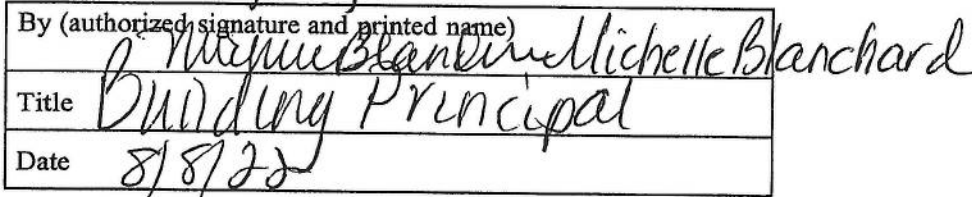 By (authorized signature and printed name)
Michelle Blanchard Michelle Blanchard
Title Building Principal
Date 8/8/22